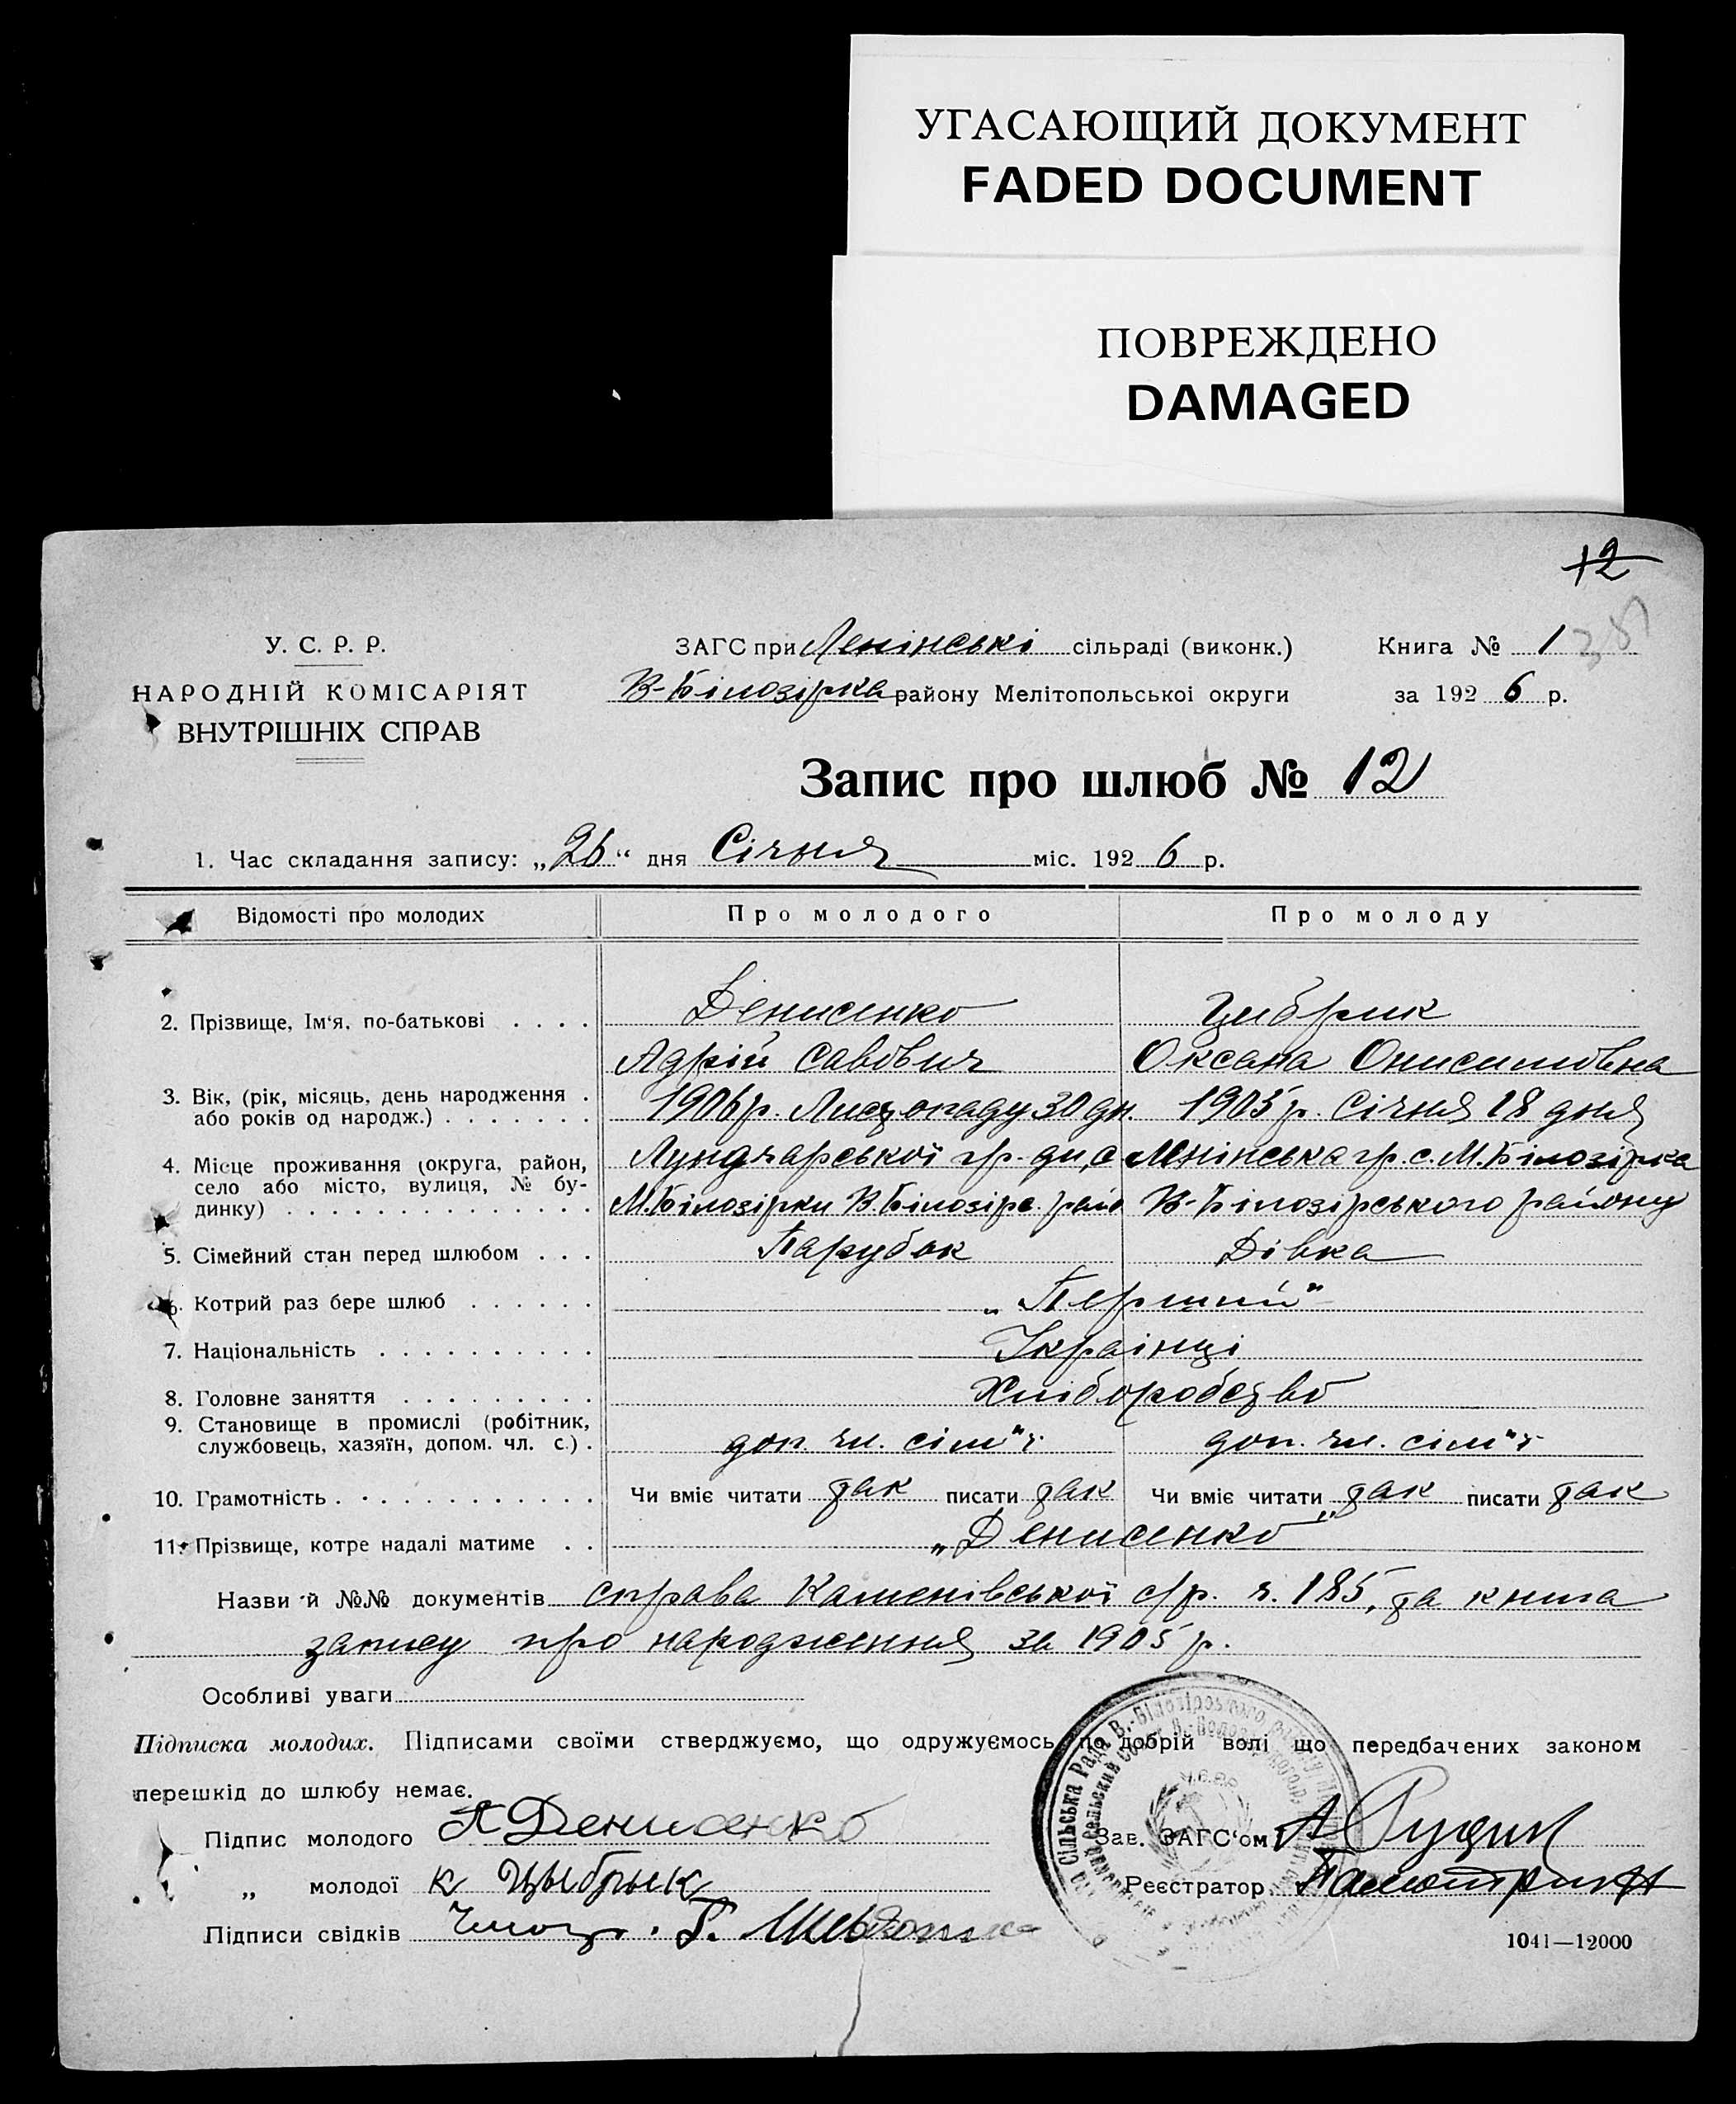 УГАСАЮЩИЙ ДОКУМЕНТ
FADED DOCUMENT
ПОВРЕЖДЕНО
DAMAGED
12
У. С. Р. Р.
НАРОДНІЙ КОМІСАРІЯТ
ВНУТРІШНІХ СПРАВ
ЗАГС при Ленінські сільраді (виконк.) Книга № 1
В-Білозірка району Мелітопольської округи за 1926 р.
Запис про шлюб № 12
1. Час складання запису: „26“ дня Січня міс. 1926 р.
Відомості про молодих Про молодого Про молоду
2. Прізвище, Ім‘я, по-батькові Денисенко Цибрик
Адрій Савович Оксана Онисимовна
3. Вік, (рік, місяць, день народження 1906 р. Листопаду 30 дн. 1905 р. Січня 18 дня
або років од народж.)
4. Місце проживання (округа, район, Лундчарської гр-ди, с Ленінська гр. с. М. Білозірка
село або місто, вулиця, № бу- М. Білозірки В. Білозірс. райо В-Білозірського району
динку)
5. Сімейний стан перед шлюбом Парубок Дівка
6. Котрий раз бере шлюб „Перший"
7. Національність Українці
8. Головне заняття Хліборобство
9. Становище в промислі (робітник,
службовець, хазяїн, допом. чл. с.) доп. чл. сім"ї доп. чл. сім"ї
10. Грамотність Чи вміє читати так писати так Чи вміє читати так писати так
11. Прізвище, котре надалі матиме „Денисенко"
Назви й №№ документів справа Каменівської с/р. ч. 185, та книга
запису про народження за 1905 р.
Особливі уваги
Підписка молодих. Підписами своїми стверджуємо, що одружуємось по добрій волі що передбачених законом
перешкід до шлюбу немає.
Підпис молодого А Денисенко Зав. ЗАГС‘ом
„ молодої к Цыбрык Реєстратор
Підписи свідків
1041—12000